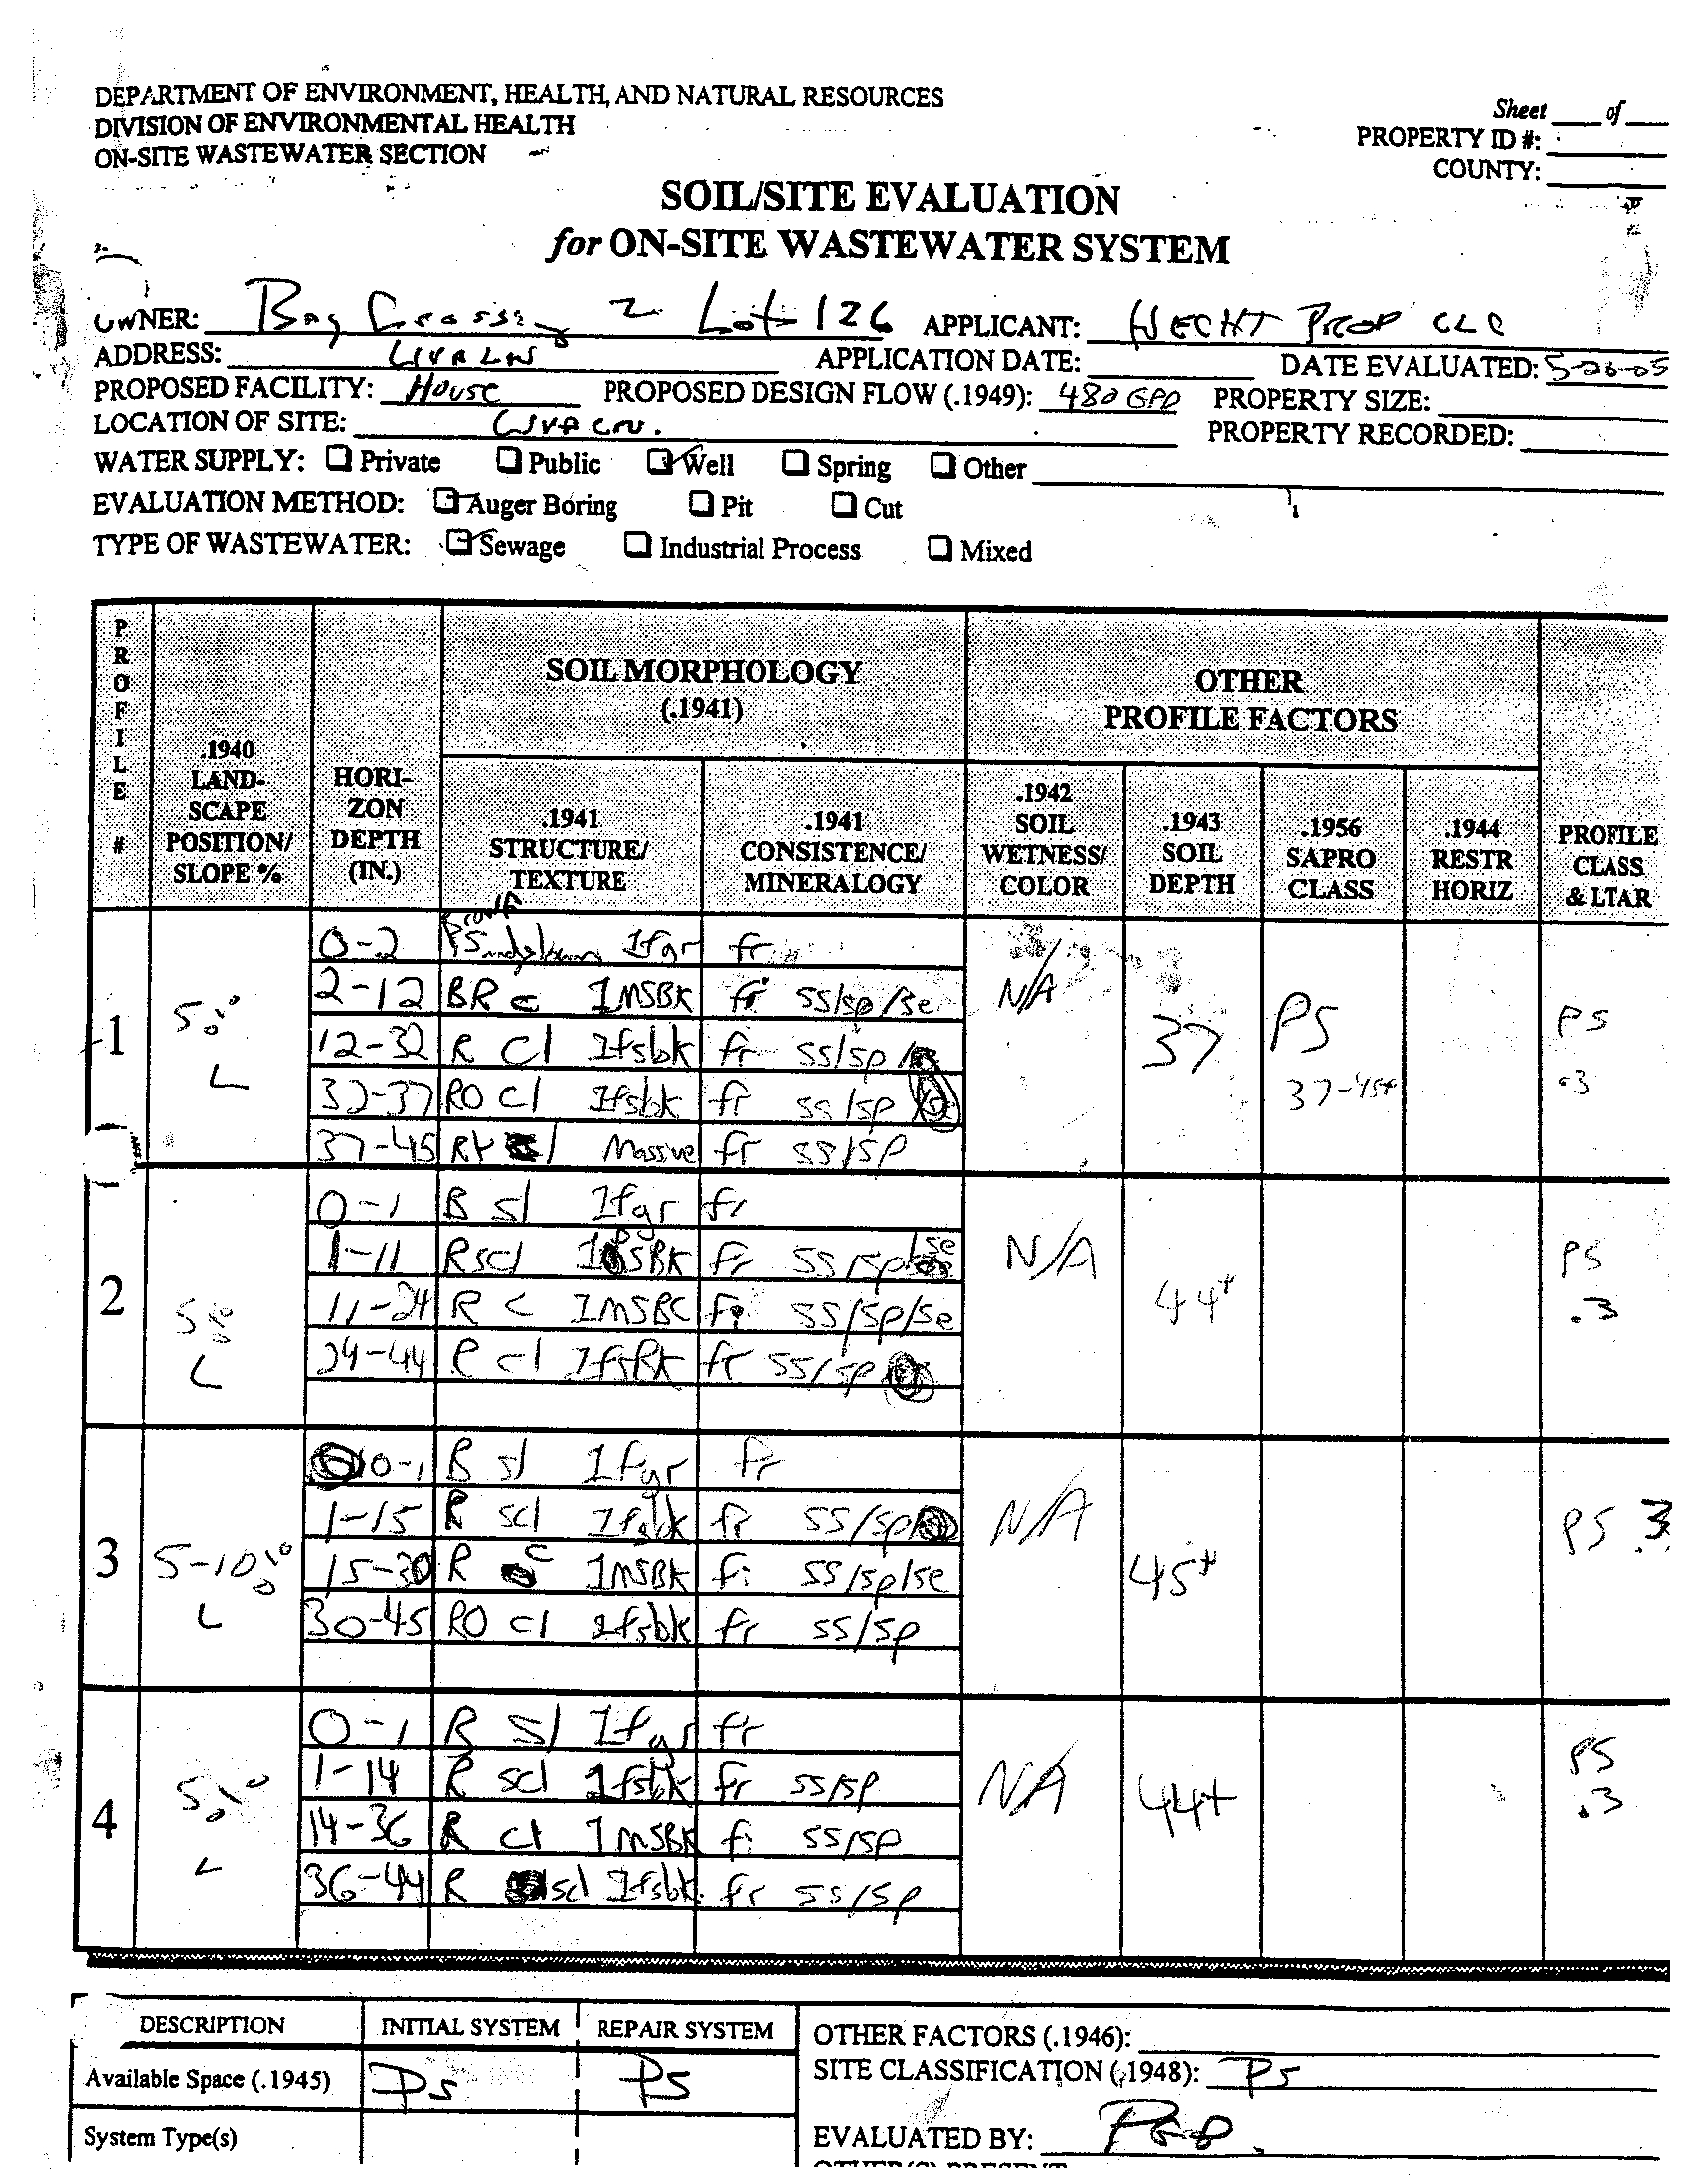 DEPARTMENT OF ENVIRONMENT, HEALTH, AND NATURAL RESOURCES
DIVISION OF ENVIRONMENTAL HEALTH
ON-SITE WASTEWATER SECTION
Sheet ___ of ___
PROPERTY ID #:
COUNTY:
SOIL/SITE EVALUATION
for ON-SITE WASTEWATER SYSTEM
OWNER: Bay Crossing 2 Lot 126 APPLICANT: HECHT PROP LLC
ADDRESS: APPLICATION DATE: DATE EVALUATED: 5-26-05
PROPOSED FACILITY: House PROPOSED DESIGN FLOW (.1949): 480 GPD PROPERTY SIZE:
LOCATION OF SITE: PROPERTY RECORDED:
WATER SUPPLY: Private Public Well Spring Other
EVALUATION METHOD: Auger Boring Pit Cut
TYPE OF WASTEWATER: Sewage Industrial Process Mixed
PROFILE #
.1940 LAND-SCAPE POSITION/ SLOPE %
HORI-ZON DEPTH (IN.)
SOIL MORPHOLOGY (.1941)
.1941 STRUCTURE/ TEXTURE
.1941 CONSISTENCE/ MINERALOGY
OTHER PROFILE FACTORS
.1942 SOIL WETNESS/ COLOR
.1943 SOIL DEPTH
.1956 SAPRO CLASS
.1944 RESTR HORIZ
PROFILE CLASS & LTAR
1 5% L
0-2 1fgr fr
2-12 BR c 1MSBK fi ss/sp/se
12-32 R cl 1fsbk fr ss/sp
32-37 RO cl 1fsbk fr ss/sp
37-45 RY l Massive fr ss/sp
N/A 37 PS 37-45+ PS .3
2 5% L
0-1 B sl 1fgr fr
1-11 R scl SBK fr ss/sp/se
11-24 R c 1MSBC fi ss/sp/se
24-44 R cl 1fsBk fr ss/sp
N/A 44+ PS .3
3 5-10% L
0-1 B sl 1fgr fr
1-15 R scl 1fsbk fr ss/sp
15-30 R c 1MSBK fi ss/sp/se
30-45 RO cl 1fsbk fr ss/sp
N/A 45+ PS .3
4 5% L
0-1 R sl 1fgr fr
1-14 R scl 1fsbk fr ss/sp
14-36 R cl 1MSBK fi ss/sp
36-44 R scl 1fsbk fr ss/sp
N/A 44+ PS .3
DESCRIPTION INITIAL SYSTEM REPAIR SYSTEM
Available Space (.1945) PS PS
System Type(s)
OTHER FACTORS (.1946):
SITE CLASSIFICATION (.1948): PS
EVALUATED BY: